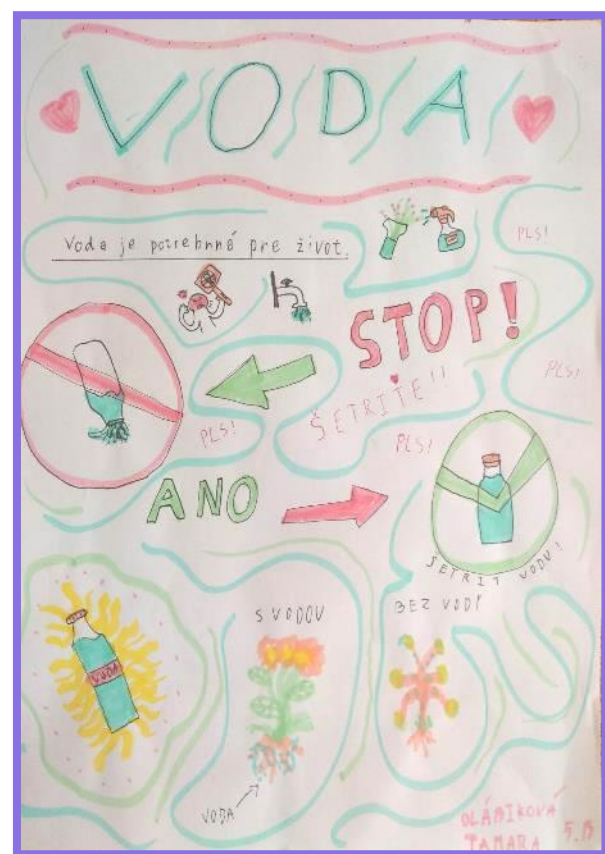 VODA
Voda je potrebnné pre život.
PLS!
STOP!
PLS!
ŠETRITE!!
PLS!
PLS!
ANO
ŠETRIT VODU!
S VODOU
BEZ VODY
VODA
VODA
OLÁBIKOVÁ
TAMARA 5.B